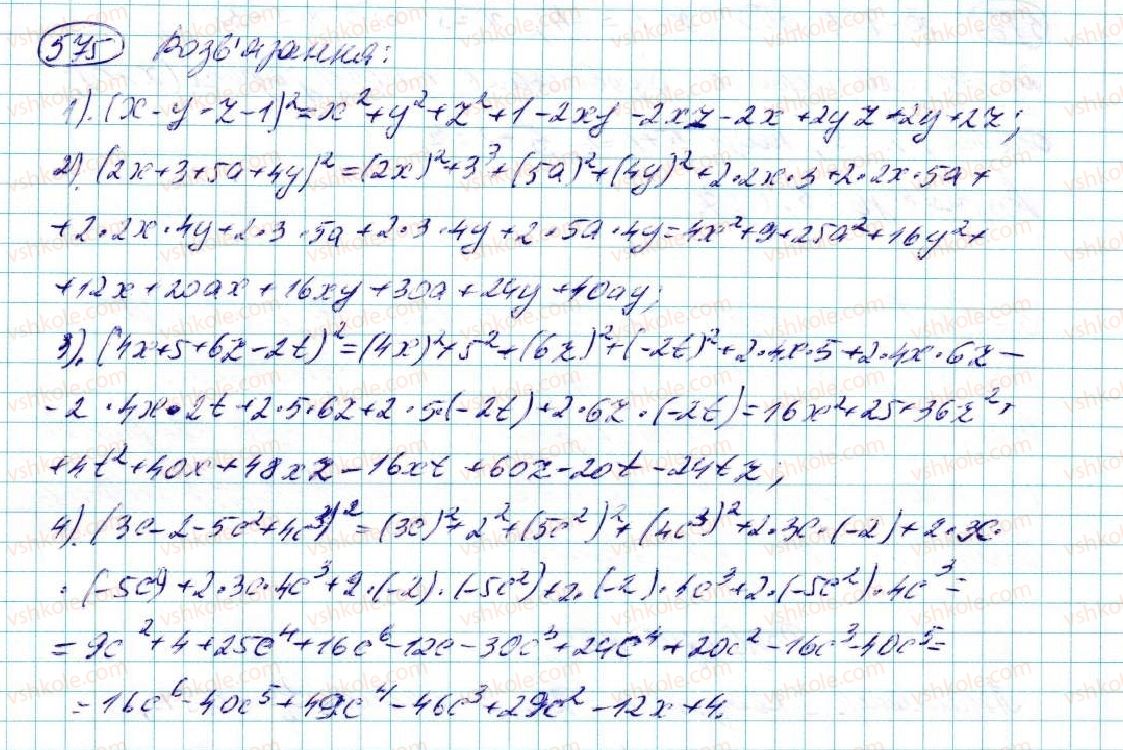 575 Розв'язання:
1). (x-y-z-1)²=x²+y²+z²+1-2xy-2xz-2x+2yz+2y+2z;
2). (2x+3+5a+4y)²=(2x)²+3³+(5a)²+(4y)²+2·2x·3+2·2x·5a+
+2·2x·4y+2·3·5a+2·3·4y+2·5a·4y=4x²+9+25a²+16y²+
+12x+20ax+16xy+30a+24y+40ay;
3). (4x+5+6z-2t)²=(4x)²+5²+(6z)²+(-2t)²+2·4x·5+2·4x·6z-
-2·4x·2t+2·5·6z+2·5·(-2t)+2·6z·(-2t)=16x²+25+36z²+
+4t²+40x+48xz-16xt+60z-20t-24tz;
4). (3c-2-5c²+4c³)²=(3c)²+2²+(5c²)²+(4c³)²+2·3c·(-2)+2·3c·
·(-5c²)+2·3c·4c³+2·(-2)·(-5c²)+2·(-2)·4c³+2·(-5c²)·4c³=
=9c²+4+25c⁴+16c⁶-12c-30c³+24c⁴+20c²-16c³-40c⁵=
=16c⁶-40c⁵+49c⁴-46c³+29c²-12x+4.